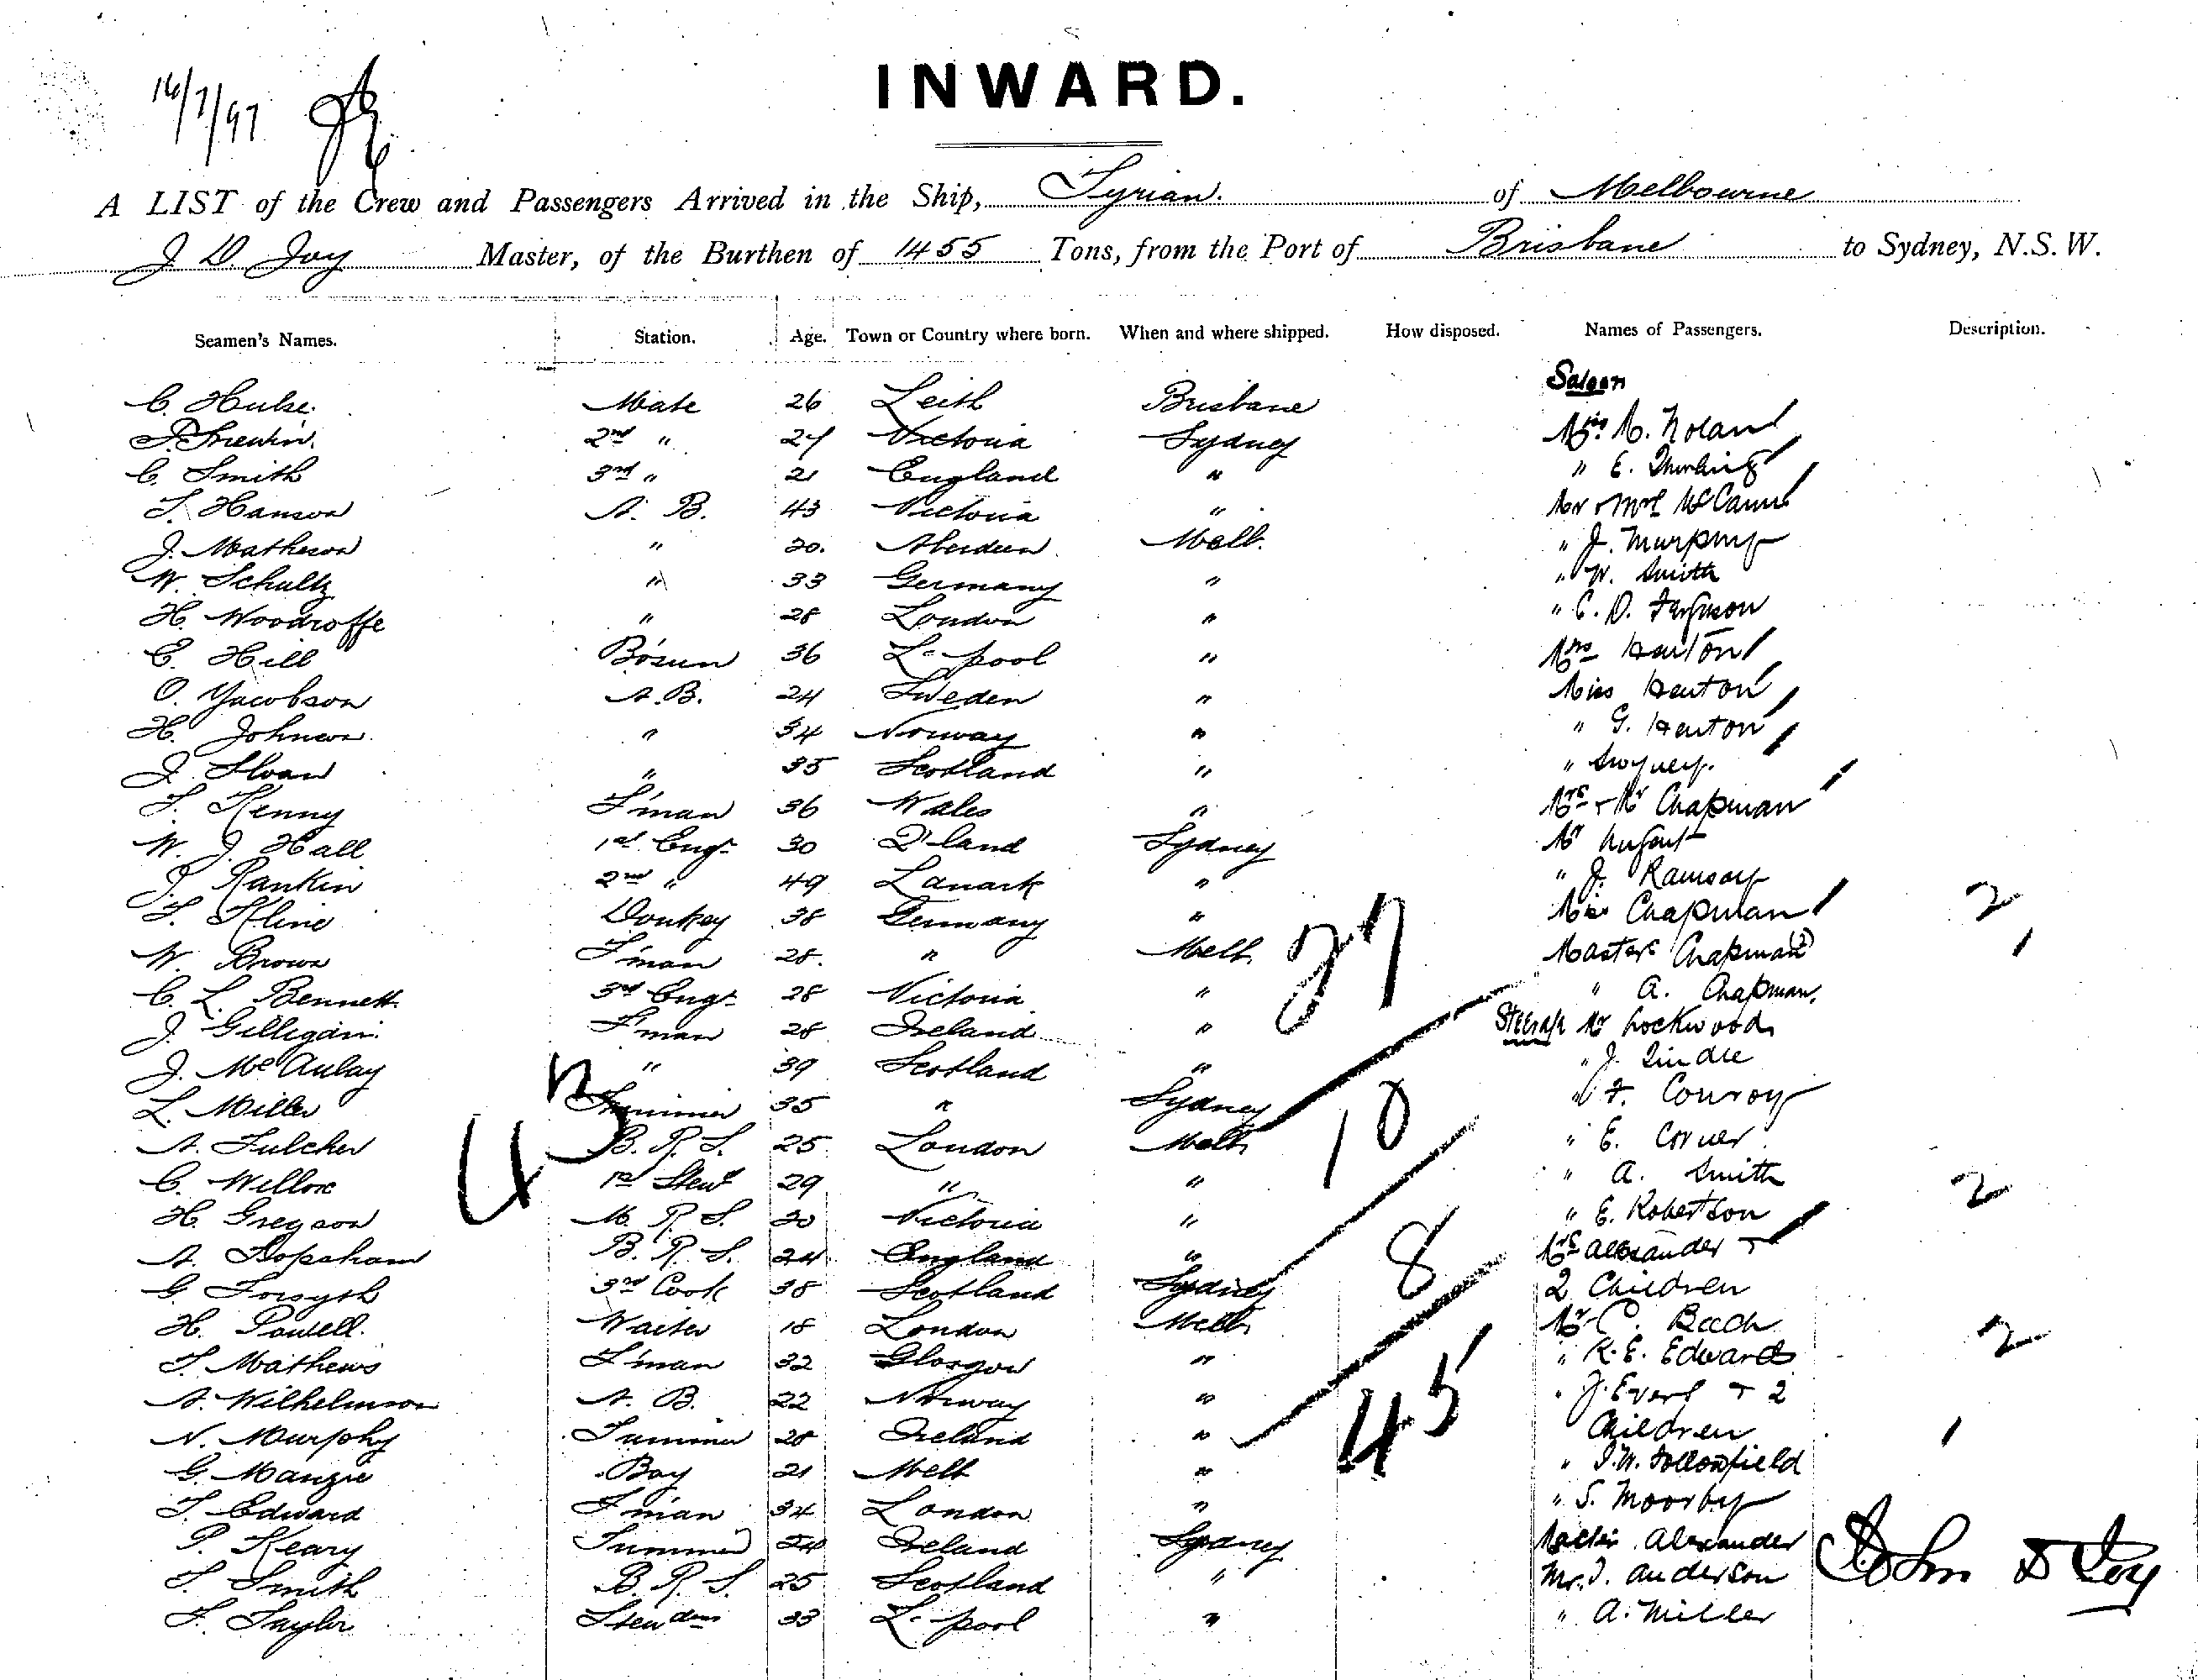 INWARD.
16/7/97
A LIST of the Crew and Passengers Arrived in the Ship, Syrian. of Melbourne
J D Joy Master, of the Burthen of 1455 Tons, from the Port of Brisbane to Sydney, N.S.W.
Seamen's Names. Station. Age. Town or Country where born. When and where shipped. How disposed. Names of Passengers. Description.
Saloon
C. Hulse. Mate 26 Leith Brisbane
2nd " Victoria Sydney Miss M. Noland
C. Smith 3rd " 21 England " " E.
T. Hanson A. B. 43 Victoria " Mr & Mrs McCann
J. Matheson " 20. Aberdeen Melb. " J. Murphy
W. Schultz " 33 Germany " " W. Smith
H. Woodroffe " 28 London " " C. D. Ferguson
C. Hill Bosun 36 L-pool " Mrs Heaton
O. Yacobson A.B. 24 Sweden " Miss Heaton
H. Johnson " 34 Norway " " G. Heaton
J. Sloan " 35 Scotland " "
T. Kenny F'man 36 Wales " Mrs & Mr Chapman
W. J. Hall 1st Engr 30 Q'land Sydney Mr Nugent
J. Rankin 2nd " 49 Lanark " " J. Ramsay
F. Kline Donkey 38 Germany " Miss Chapman 2
W. Brown F'man 28. " Melb. 27 Masters Chapman (2) 1
C. L. Bennett 3rd Engr 28 Victoria " " A. Chapman.
J. Gilligan. F'man 28 Ireland " Steerage Mr Lockwood
J. McAulay " 39 Scotland " " J. Lindle
L. Miller Trimmer 35 " Sydney " F. Conroy
43 10
A. Fulcher B. R. S. 25 London Melb " E. Corner
C. Willox 1st Stewd 29 " " " A. Smith
H. Gregson M. R. S. 20 Victoria " " E. Robertson 2
A. Topsham B. R. S. 24 England " Mrs Alexander &
G. Forsyth 3rd Cook 38 Scotland Sydney 8 2 Children
H. Powell. Waiter 18 London Melb Mr C. Bach
T. Mathews F'man 32 Glasgow " " R. E. Edwards 2
A. Wilhelmson A. B. 22 Norway " 45 " J. Evert & 2
N. Murphy Trimmer 28 Ireland " Children 1
G. Manzie Boy 21 Melb " " I. W. Hollowfield
T. Edward F'man 34 London " " S. Moorby
P. Keary Trimmer 24 Ireland Sydney Master Alexander
T. Smith B. R. S. 25 Scotland " Mr. J. Anderson John D Joy
F. Taylor Stewdess 33 L-pool " " A. Miller